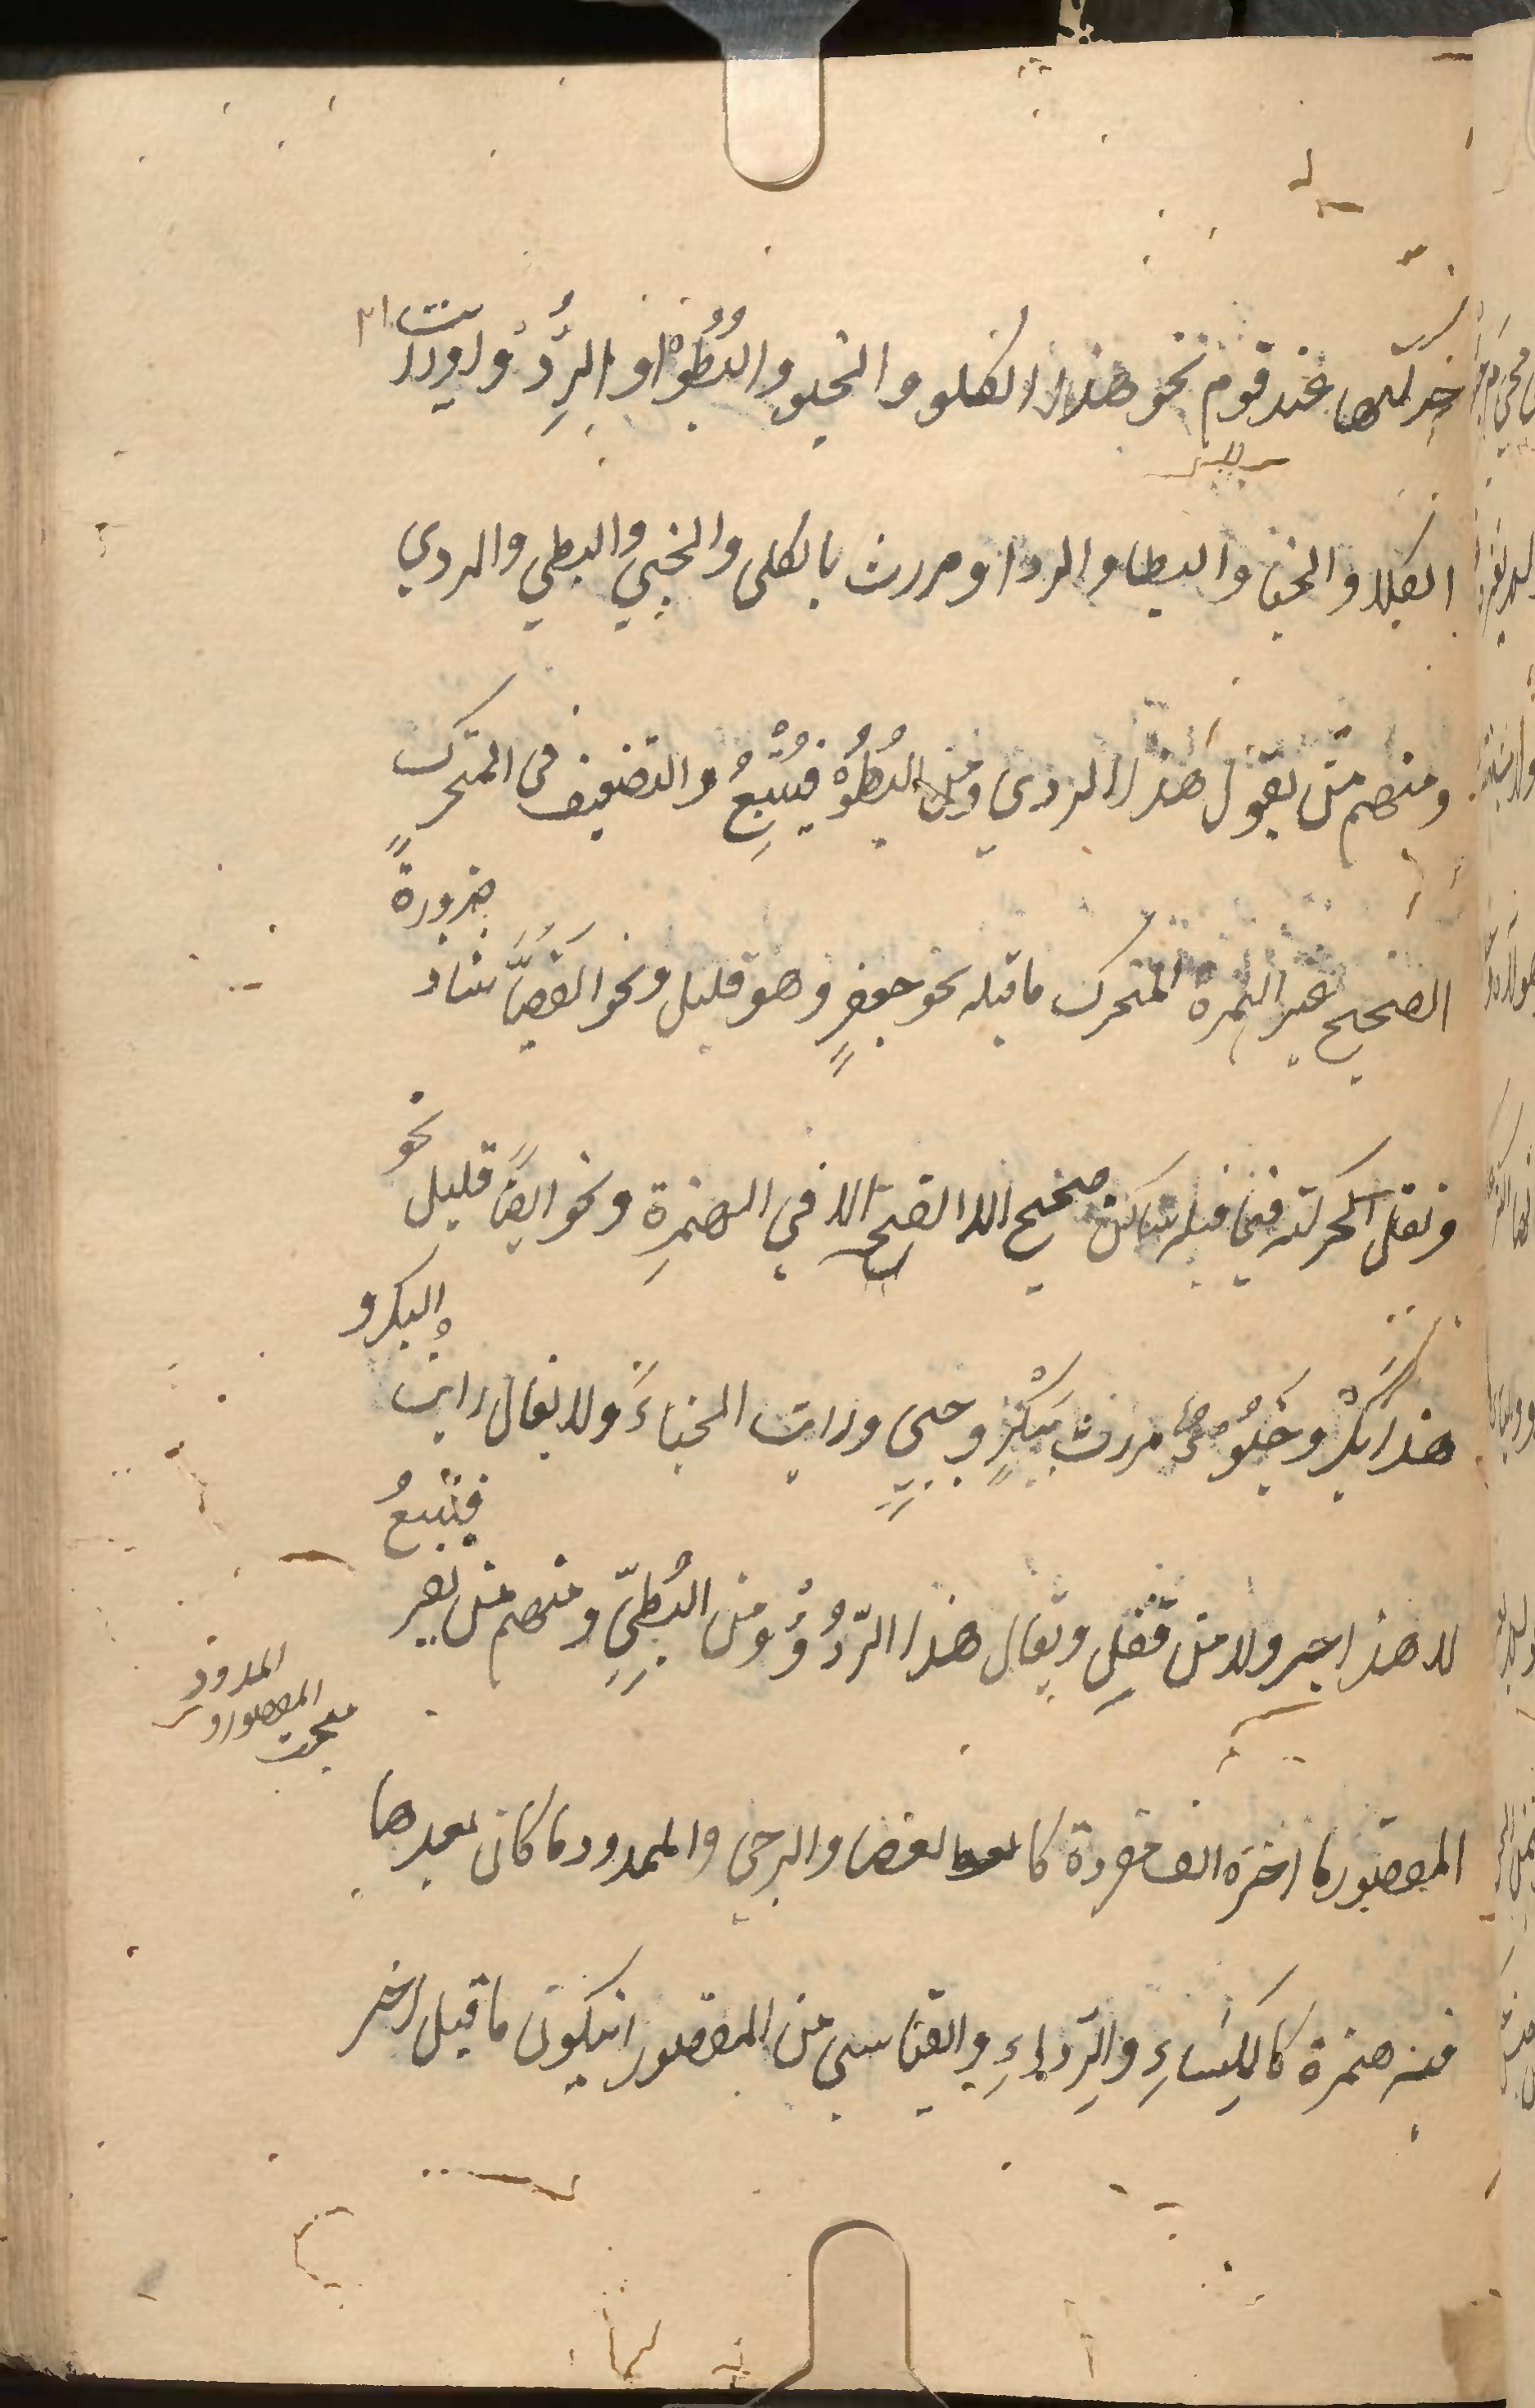 حركتها عند قوم نحو هذا الكلو والخبو والبُطُوْ والرِدُو ورايت
الكلا والخبا والبطا والردا ومررت بالكلى والخبي والبطي والردي
ومنهم من يقول هذا الردي ومن البُطُوْ فيُتْبِعُ والتضعيف في المتحرك
الصحيح غير الهمزة المتحرك ما قبله نحو جعفرٍ وهو قليل ونحو القصبَّا شاذ
ضرورةً
ونقل الحركة فيما قبله ساكن صحيح الا الفتح الا في الهمزة ونحو ايضًا قليل
نحو
هذا بكُرْ وخَبُو مررت ببكرٍ وخبي ورايت الخباءَ ولا يقال رايت
البكر و
لا هذا حبر ولا من قفل ويقال هذا الرِّدُؤُ ومن البُطِي ومنهم من يفر
فيتبعُ
المدود
المقصور و
مبحث
المقصور ما اخره الف مفردة كالعصا والرحى والممدود ما كان بعدها
فيه همزة كالكِسَاءِ والرِّداءِ والقياسي من المقصور ان يكون ما قبل اخر